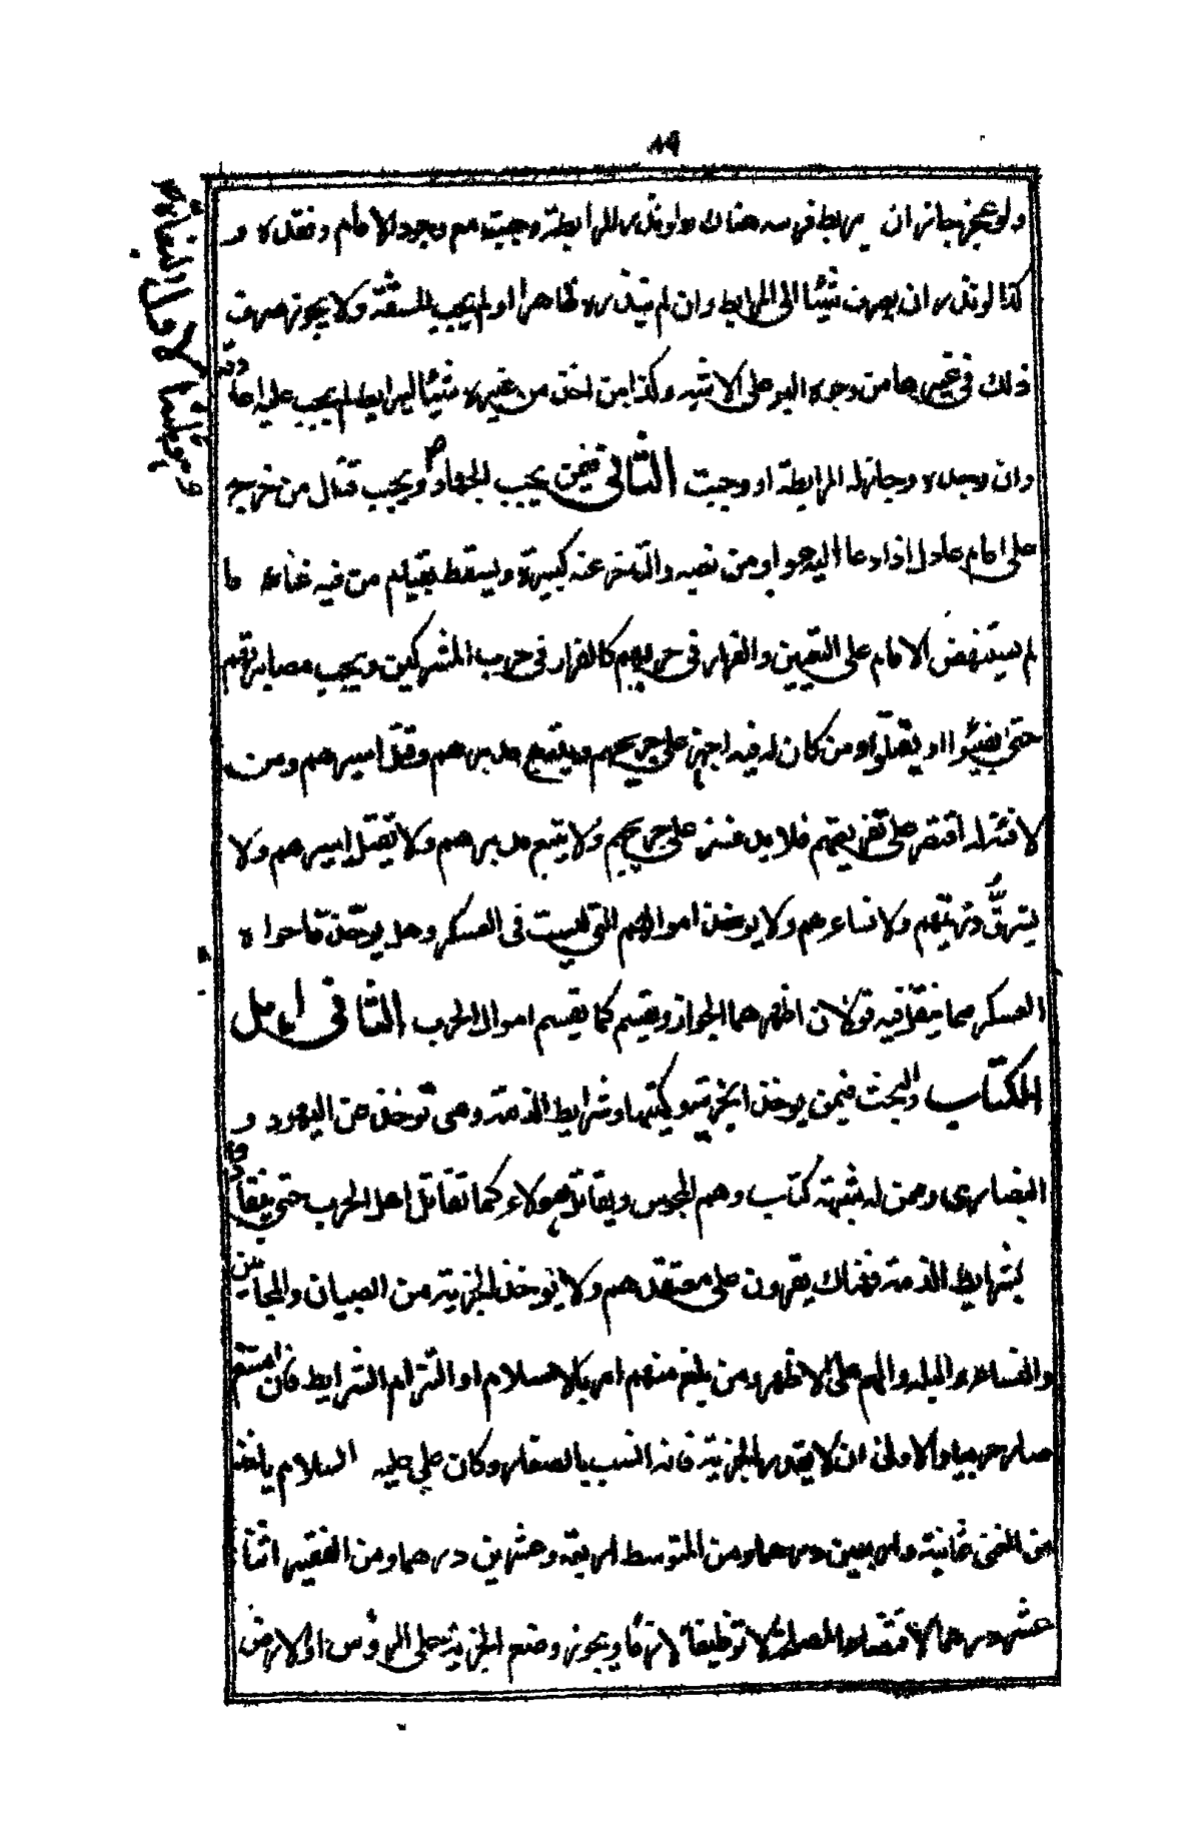 ٨٩
ولو عجز جاز ان يربط فرسه هناك ولو نذر المرابطة وجبت مع وجود الامام وفقده و
كذا لو نذر ان يصرف شيئا الى المرابط وان لم ينذره ظاهرا ولم يجب للشنعة ولا يجوز صرف
ذلك في غيرها من وجوه البر على الاشبه وكذا من اخذ من غيره شيئا ليرابط لم يجب عليه اعادته
وان وجده وجاز له المرابطة او وجبت الثاني فيمن يجب الجهاد ويجب قتال من خرج
على امام عادل اذا دعا اليه هو او من نصبه والتاخر عنه كبيرة ويسقط بقيام من فيه غناء ما
لم يستنهض الامام على التعيين والفرار في حربهم كالفرار في حرب المشركين ويجب مصابرتهم
حتى يفيئوا او يقتلوا ومن كان له فئة اجهز على جريحهم ويتبع مدبرهم وقتل اسيرهم ومن
لا فئة له اقتصر على تفريقهم فلا يذفف على جريحهم ولا يتبع مدبرهم ولا يقتل اسيرهم ولا
يسترق ذريتهم ولا نساءهم ولا يوخذ اموالهم التي ليست في العسكر وهل يوخذ ما حواه
العسكر مما ينقل فيه قولان اظهرهما الجواز ويقسم كما يقسم اموال الحرب الثاني اهل
الكتاب والبحث فيمن يوخذ الجزية وكميتها وشرايط الذمة وهي توخذ من اليهود و
النصارى وممن له شبهة كتاب وهم المجوس ويقاتل هولاء كما تقاتل اهل الحرب حتى ينقادوا
بشرايط الذمة فهناك يقرون على معتقدهم ولا توخذ الجزية من الصبيان والمجانين
والنساء والبله والهم على الاظهر ومن بلغ منهم امر بالاسلام او التزام الشرايط فان امتنع
صار حربيا والاولى ان لا يقدر الجزية فانه انسب بالصغار وكان علي عليه السلام ياخذ
من الغني ثمانية واربعين درهما ومن المتوسط اربعة وعشرين درهما ومن الفقير اثنا
عشر درهما لاقتضاء المصلحة لا توظيفا لازما ويجوز وضع الجزية على الروس او الارض